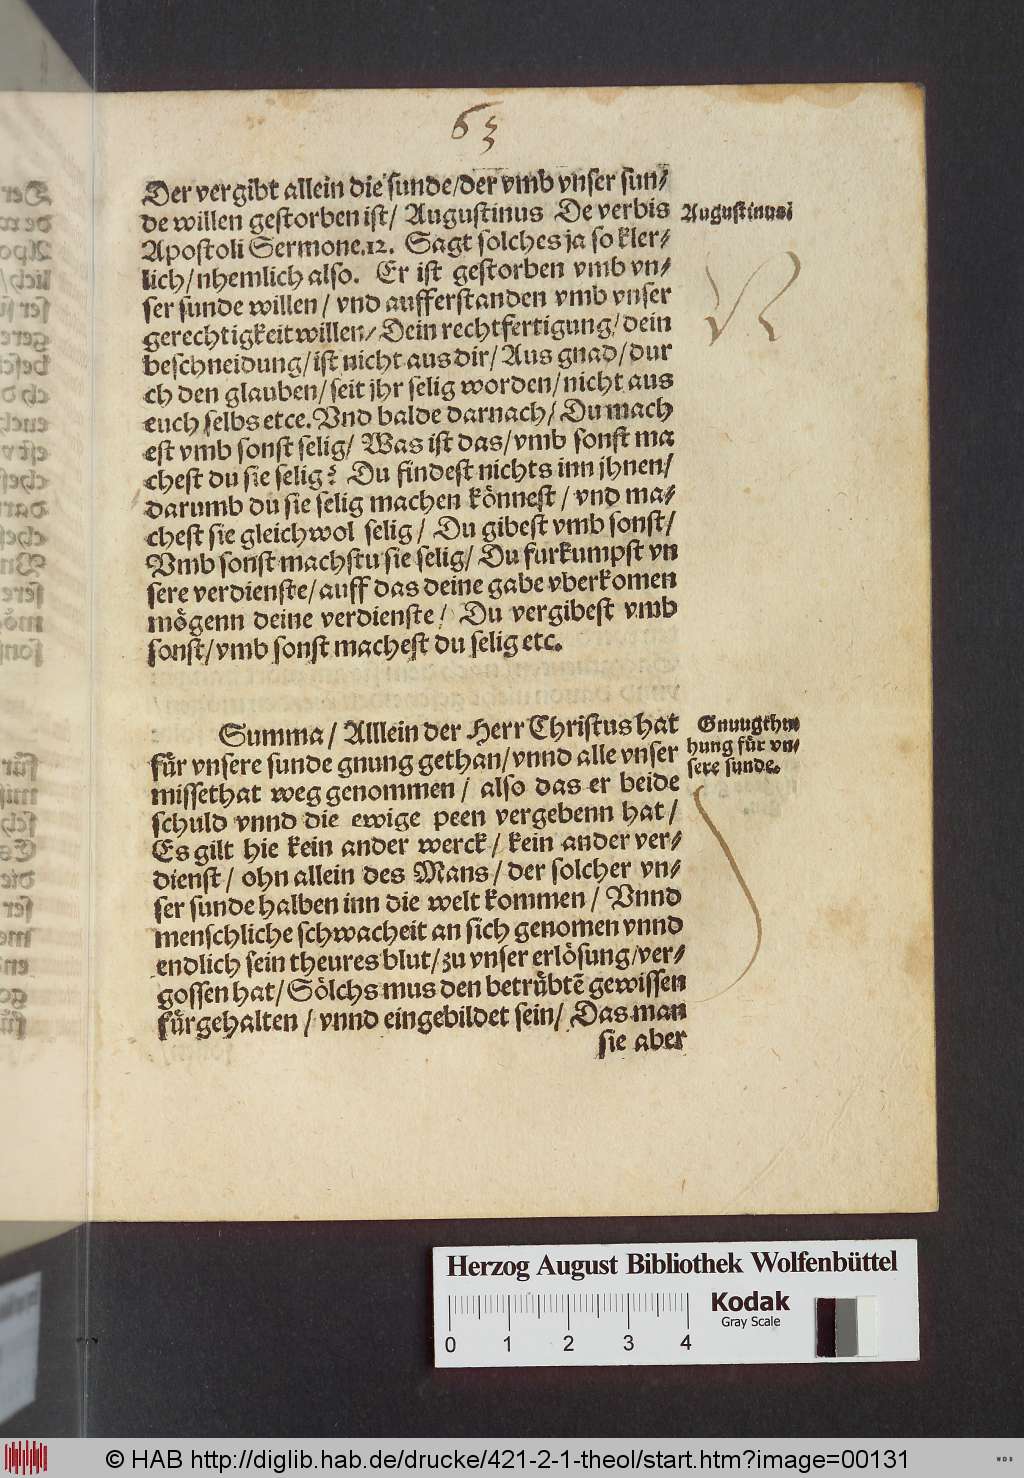 63
Der vergibt allein die sunde/der vmb vnser sun⸗
de willen gestorben ist/ Augustinus De verbis
Augustinus
Apostoli Sermone.12. Sagt solches ja so kler⸗
lich/nhemlich also. Er ist gestorben vmb vn⸗
ser sunde willen/ vnd aufferstanden vmb vnser
gerechtigkeit willen/ Dein rechtfertigung/dein
beschneidung/ist nicht aus dir/Aus gnad/dur
ch den glauben/seit jhr selig worden/nicht aus
euch selbs etce. Vnd balde darnach/ Du mach
est vmb sonst selig/ Was ist das/vmb sonst ma
chest du sie selig? Du findest nichts inn jhnen/
darumb du sie selig machen könnest/ vnd ma⸗
chest sie gleichwol selig/ Du gibest vmb sonst/
Vmb sonst machstu sie selig/ Du furkumpst vn
sere verdienste/auff das deine gabe vberkomen
mögenn deine verdienste/ Du vergibest vmb
sonst/vmb sonst machest du selig etc.
Summa/ Alllein der Herr Christus hat
für vnsere sunde gnung gethan/vnnd alle vnser
missethat weg genommen/ also das er beide
schuld vnnd die ewige peen vergebenn hat/
Es gilt hie kein ander werck/ kein ander ver⸗
dienst/ ohn allein des Mans/ der solcher vn⸗
ser sunde halben inn die welt kommen/ Vnnd
menschliche schwacheit an sich genomen vnnd
endlich sein theures blut/zu vnser erlösung/ver⸗
gossen hat/ Sölchs mus den betrübtē gewissen
fürgehalten/ vnnd eingebildet sein/ Das man
sie aber
hung für vn⸗
sere sunde.
Herzog August Bibliothek Wolfenbüttel
Kodak
Gray Scale
0 1 2 3 4
© HAB http://diglib.hab.de/drucke/421-2-1-theol/start.htm?image=00131